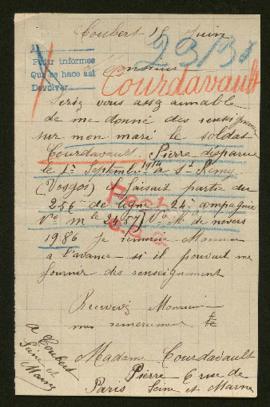 Coubert 15 Juin
23/31
A
Pedir informes
Que se hace así
Devolver
Monsieur
Courdavault
Seriez vous assez aimable
de me donné des renseig
sur mon mari le soldat
Courdavault Pierre disparue
le 1er Septembre à St Remy
(Vosges) faisait partie du
256e de ligne 24e compagnie
No mle 2457
1986 je remercie Monsieur
à l'avance si il pouvait me
fournir des renseignement
Recevez Monsieur
mes remerciement
Madame Courdavault
Pierre 6 rue de
Paris Seine et Marne
a Coubert
Seine et
Marne